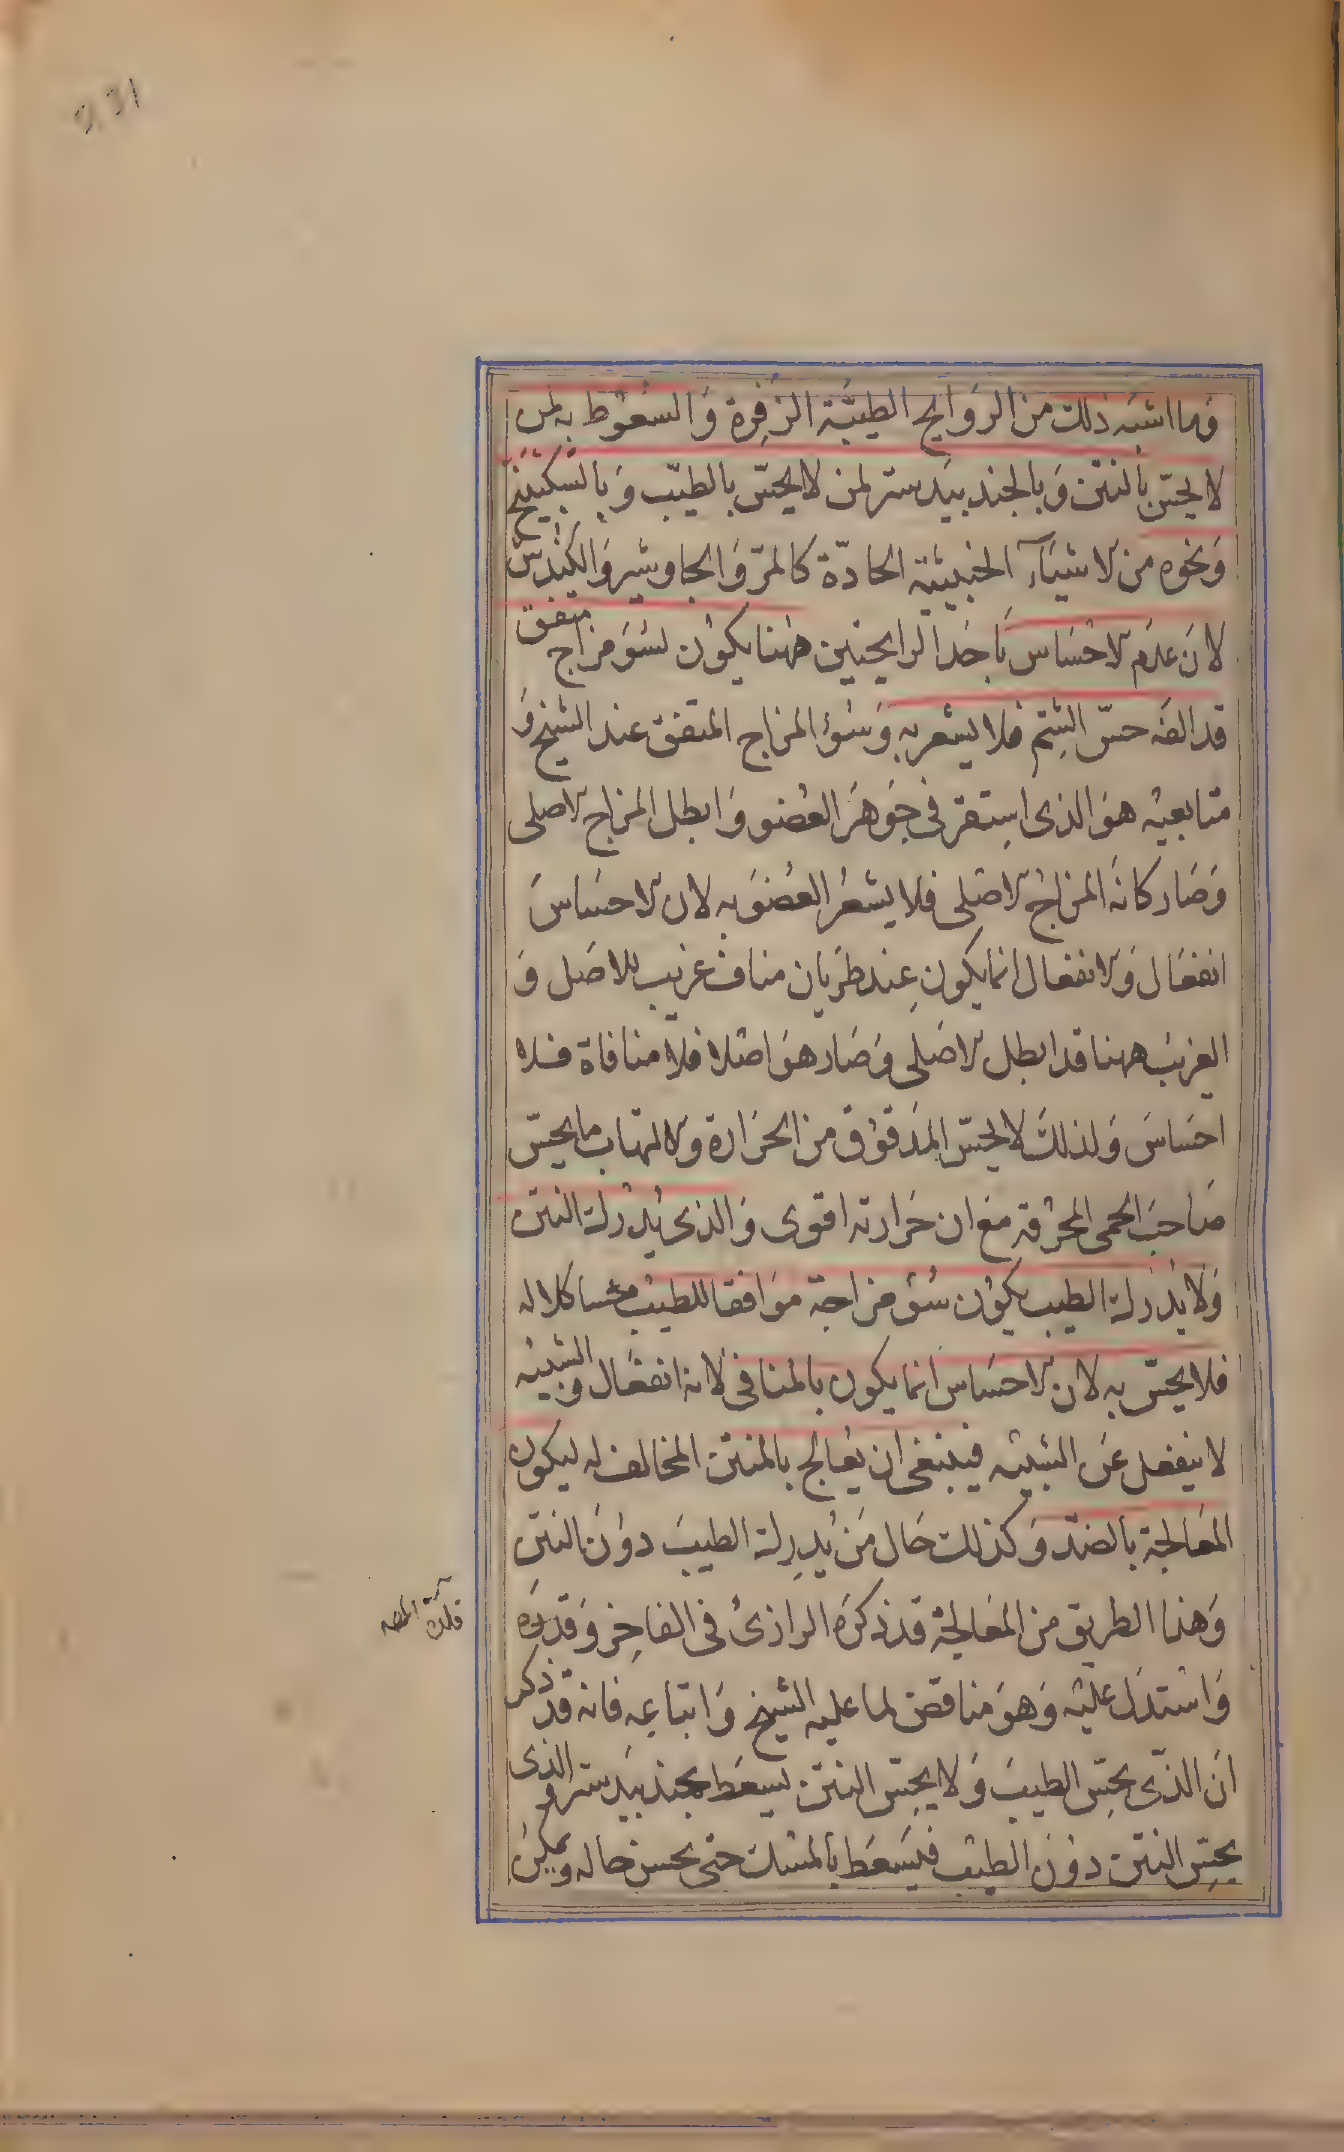 وَما اشبَه ذلك من الرَوايح الطيّبَة الزَفِرة وَالسَعُوط به لمن
لا يحسّ بالنتن وَبالجند بيَدستر لمن لا يحسّ بالطيّب وَبالسكبَينَج
وَنحوه من الاشيَآء الخبيثة الحادّة كالمرّ وَالجاوشير وَالكندس
لان عدَم الاحسَاس باحَد الرايحتين ههنا يكون لسُوَ مزاج متفق
قد الفه حسّ الشم فلا يشعر به وَسُوُ المزاج المتفق عند الشيخ وَ
متابعيه هوَ الذى استقر فى جَوهَر العُضو وَابطل المزاج الاصلى
وَصَار كانه المزاج الاصلى فلا يشعُر العُضوَ به لان الاحسَاسَ
انفعَال وَالانفعال انما يكون عِند طرَيان مناف غريب للاصَل وَ
الغريبَ ههنا قد ابطل الاصَلى وَصَار هوَ اصلا فلا منافاة فلا
احسَاسَ وَلذلكَ لا يحسّ المَدقوُق من الحَرارة وَالالتهاب ما يحسّ
صَاحبَ الحمى المحرقة معَ ان حَرارته اقوى وَالذى يُدرك النتن
وَلا يُدرك الطيب يكوُن سُوَ مزاجه موَافقا للطيب مشاكلا له
فلا يحسّ به لان الاحسَاسَ انما يكون بالمنافى لانه انفعَال وَالشبيه
لا ينفعل عَن الشبيه فينبغى ان يعَالج بالمنتن المخالف له ليكون
المعَالجة بالضدّ وَكذلك حَال مَن يُدرِك الطيبَ دوُنَ النتن
وَهذا الطريق من المعَالجة قد ذكرَه الرازىُ فى الفاخِر وَقد رَدّه
وَاستدَل عليَه وَهوَ مناقض لما عليه الشيخ وَاتباعِه فانه قد ذكر
انَ الذّى يحسّ الطيبَ وَلا يحِسّ النتن يسعَط بجند بيَدستر وَالذى
يحِسّ النتن دوُنَ الطيب فيَسعَط بالمسَك حتى يحسن حاله وَيمكن